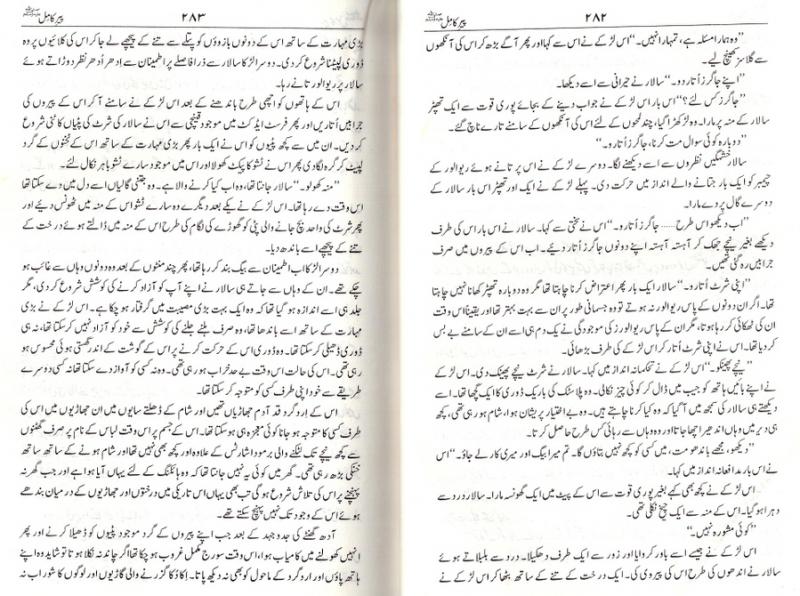 پیر کامل ۲۸۲
”وہ ہمارا مسئلہ ہے، تمہارا نہیں۔“ اس لڑکے نے اس سے کہا اور پھر آگے بڑھ کر اس کی آنکھوں
سے گلاسز کھینچ لیے۔
”اپنے جاگرز اتار دو۔“ سالار نے حیرانی سے اسے دیکھا۔
”جاگرز کس لئے؟“ اس بار اس لڑکے نے جواب دینے کے بجائے پوری قوت سے ایک تھپڑ
سالار کے منہ پر مارا۔ وہ لڑکھڑا گیا، چند لمحوں کے لئے اس کی آنکھوں کے سامنے تارے ناچ گئے۔
”دوبارہ کوئی سوال مت کرنا، جاگرز اُتارو۔“
سالار خشمگیں نظروں سے اسے دیکھنے لگا۔ دوسرے لڑکے نے اس پر تانے ہوئے ریوالور کے
چیمبر کو ایک بار جتانے والے انداز میں حرکت دی۔ پہلے لڑکے نے ایک اور تھپڑ اس بار سالار کے
دوسرے گال پر دے مارا۔
”اب دیکھو اس طرح...... جاگرز اُتارو۔“ اس نے سختی سے کہا۔ سالار نے اس بار اس کی طرف
دیکھے بغیر نیچے جھک کر آہستہ آہستہ اپنے دونوں جاگرز اُتار دیئے۔ اب اس کے پیروں میں صرف
جرابیں رہ گئی تھیں۔
”اپنی شرٹ اُتارو۔“ سالار ایک بار پھر اعتراض کرنا چاہتا تھا مگر وہ دوبارہ تھپڑ کھانا نہیں چاہتا
تھا۔ اگر ان دونوں کے پاس ریوالور نہ ہوتے تو وہ جسمانی طور پر ان سے بہت بہتر تھا اور یقیناً اس وقت
ان کی ٹھکائی کر رہا ہوتا، مگر ان کے پاس ریوالورز کی موجودگی نے یک دم ہی اسے ان کے سامنے بے بس
کر دیا تھا۔ اس نے اپنی شرٹ اُتار کر اس لڑکے کی طرف بڑھائی۔
”نیچے پھینکو۔“ اس لڑکے نے تحکمانہ انداز میں کہا۔ سالار نے شرٹ نیچے پھینک دی۔ اس لڑکے
نے اپنے بائیں ہاتھ کو جیب میں ڈال کر کوئی چیز نکالی۔ وہ پلاسٹک کی باریک ڈوری کا ایک گچھا تھا۔ اسے
دیکھتے ہی سالار کی سمجھ میں آ گیا کہ وہ کیا کرنا چاہتے ہیں۔ وہ بے اختیار پریشان ہوا، شام ہو رہی تھی، کچھ
ہی دیر میں وہاں اندھیرا چھا جاتا اور وہ وہاں سے رہائی کس طرح حاصل کرتا۔
”دیکھو، مجھے باندھو مت، میں کسی کو کچھ نہیں بتاؤں گا۔ تم میرا بیگ اور میری کار لے جاؤ۔“ اس
نے اس بار مدافعانہ انداز میں کہا۔
اس لڑکے نے کچھ بھی کہے بغیر پوری قوت سے اس کے پیٹ میں ایک گھونسہ مارا۔ سالار درد سے
دہرا ہو گیا۔ اس کے منہ سے ایک چیخ نکلی تھی۔
”کوئی مشورہ نہیں۔“
اس لڑکے نے جیسے اسے باور کروایا اور زور سے ایک طرف دھکیلا۔ درد سے بلبلاتے ہوئے
سالار نے اندھوں کی طرح اس کی پیروی کی۔ ایک درخت کے تنے کے ساتھ بٹھا کر اس لڑکے نے
۲۸۳ پیر کامل
بڑی مہارت کے ساتھ اس کے دونوں بازوؤں کو پتلے سے تنے کے پیچھے لے جا کر اس کی کلائیوں پر وہ
ڈوری لپیٹنا شروع کر دی۔ دوسرا لڑکا سالار سے ذرا فاصلے پر اطمینان سے ادھر اُدھر نظر دوڑاتے ہوئے
سالار پر ریوالور تانے رہا۔
اس کے ہاتھوں کو اچھی طرح باندھنے کے بعد اس لڑکے نے سامنے آ کر اس کے پیروں کی
جرابیں اُتاریں اور پھر فرسٹ ایڈ کٹ میں موجود قینچی سے اس نے سالار کی شرٹ کی پٹیاں کاٹنی شروع
کر دیں۔ ان میں سے کچھ پٹیوں کو اس نے ایک بار پھر بڑی مہارت کے ساتھ اس کے ٹخنوں کے گرد
لپیٹ کر گرہ لگا دی پھر اس نے ٹشو کا پیکٹ کھولا اور اس میں موجود سارے ٹشو باہر نکال لئے۔
”منہ کھولو۔“ سالار جانتا تھا، وہ اب کیا کرنے والا ہے۔ وہ جتنی گالیاں اسے دل میں دے سکتا تھا
اس وقت دے رہا تھا۔ اس لڑکے نے یکے بعد دیگرے وہ سارے ٹشو اس کے منہ میں ٹھونس دیئے اور
شرٹ کی واحد بچ جانے والی پٹی کو گھوڑے کی لگام کی طرح اس کے منہ میں ڈالتے ہوئے درخت کے
تنے کے پیچھے اسے باندھ دیا۔
دوسرا لڑکا اب اطمینان سے بیگ بند کر رہا تھا، پھر چند منٹوں کے بعد وہ دونوں وہاں سے غائب ہو
چکے تھے۔ ان کے وہاں سے جاتے ہی سالار نے اپنے آپ کو آزاد کرنے کی کوشش شروع کر دی، مگر
جلد ہی اسے اندازہ ہو گیا تھا کہ وہ ایک بہت بڑی مصیبت میں گرفتار ہو چکا ہے۔ اس لڑکے نے بڑی
مہارت کے ساتھ اسے باندھا تھا، وہ صرف ہلنے جلنے کی کوشش سے خود کو آزاد نہیں کر سکتا تھا، نہ ہی
ڈوری ڈھیلی کر سکتا تھا۔ وہ ڈوری اس کے حرکت کرنے پر اس کے گوشت کے اندر گھستی ہوئی محسوس ہو
رہی تھی۔ اس کی حالت اس وقت بے حد خراب ہو رہی تھی۔ وہ نہ کسی کو آواز دے سکتا تھا نہ کسی دوسرے
طریقے سے خود اپنی طرف کسی کو متوجہ کر سکتا تھا۔
اس کے اردگرد قد آدم جھاڑیاں تھیں اور شام کے ڈھلتے سایوں میں ان جھاڑیوں میں اس کی
طرف کسی کا متوجہ ہو جانا کوئی معجزہ ہی ہو سکتا تھا۔ اس کے جسم پر اس وقت لباس کے نام پر صرف گھٹنوں
سے کچھ نیچے تک لٹکنے والی برمودا شارٹس کے علاوہ اور کچھ بھی نہیں تھا اور شام ہونے کے ساتھ ساتھ
خنکی بڑھ رہی تھی۔ گھر میں کوئی یہ نہیں جانتا تھا کہ وہ ہائکنگ کے لئے یہاں آیا ہوا ہے اور جب گھر نہ
پہنچنے پر اس کی تلاش شروع ہو گی تب بھی یہاں اس تاریکی میں درختوں اور جھاڑیوں کے درمیان بندھے
ہوئے اس کے وجود تک نہیں پہنچ سکتے تھے۔
آدھ گھنٹے کی جدوجہد کے بعد جب اپنے پیروں کے گرد موجود پٹیوں کو ڈھیلا کرنے اور پھر
انہیں کھولنے میں کامیاب ہوا، اس وقت سورج مکمل غروب ہو چکا تھا اگر چاند نہ نکلا ہوتا تو شاید وہ اپنے
ہاتھ پاؤں اور اردگرد کے ماحول کو بھی نہ دیکھ پاتا۔ اِکا دُکا گزرنے والی گاڑیوں اور لوگوں کا شور اب نہ